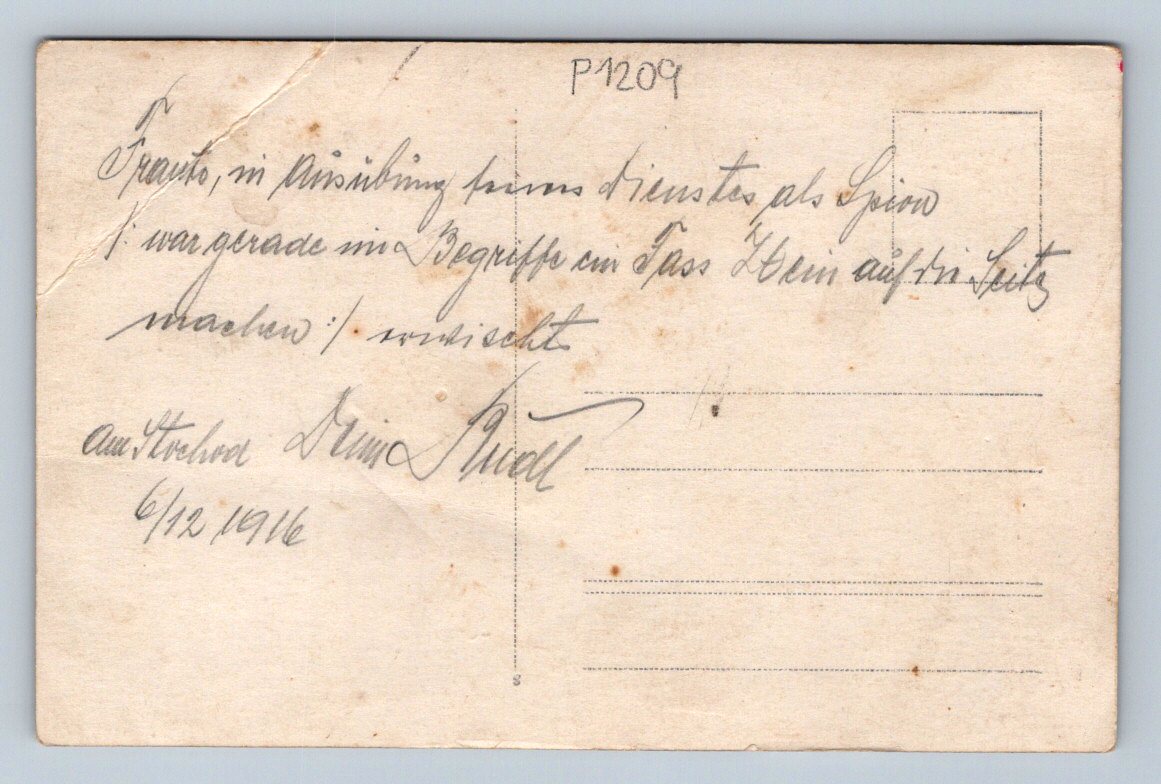 P1209
in Ausübung seines Dienstes als Spion
/: war gerade im Begriffe ein Fass Wein auf die Seite
machen :/ erwischt
am Stochod Dein Rudl
6/12 1916
8